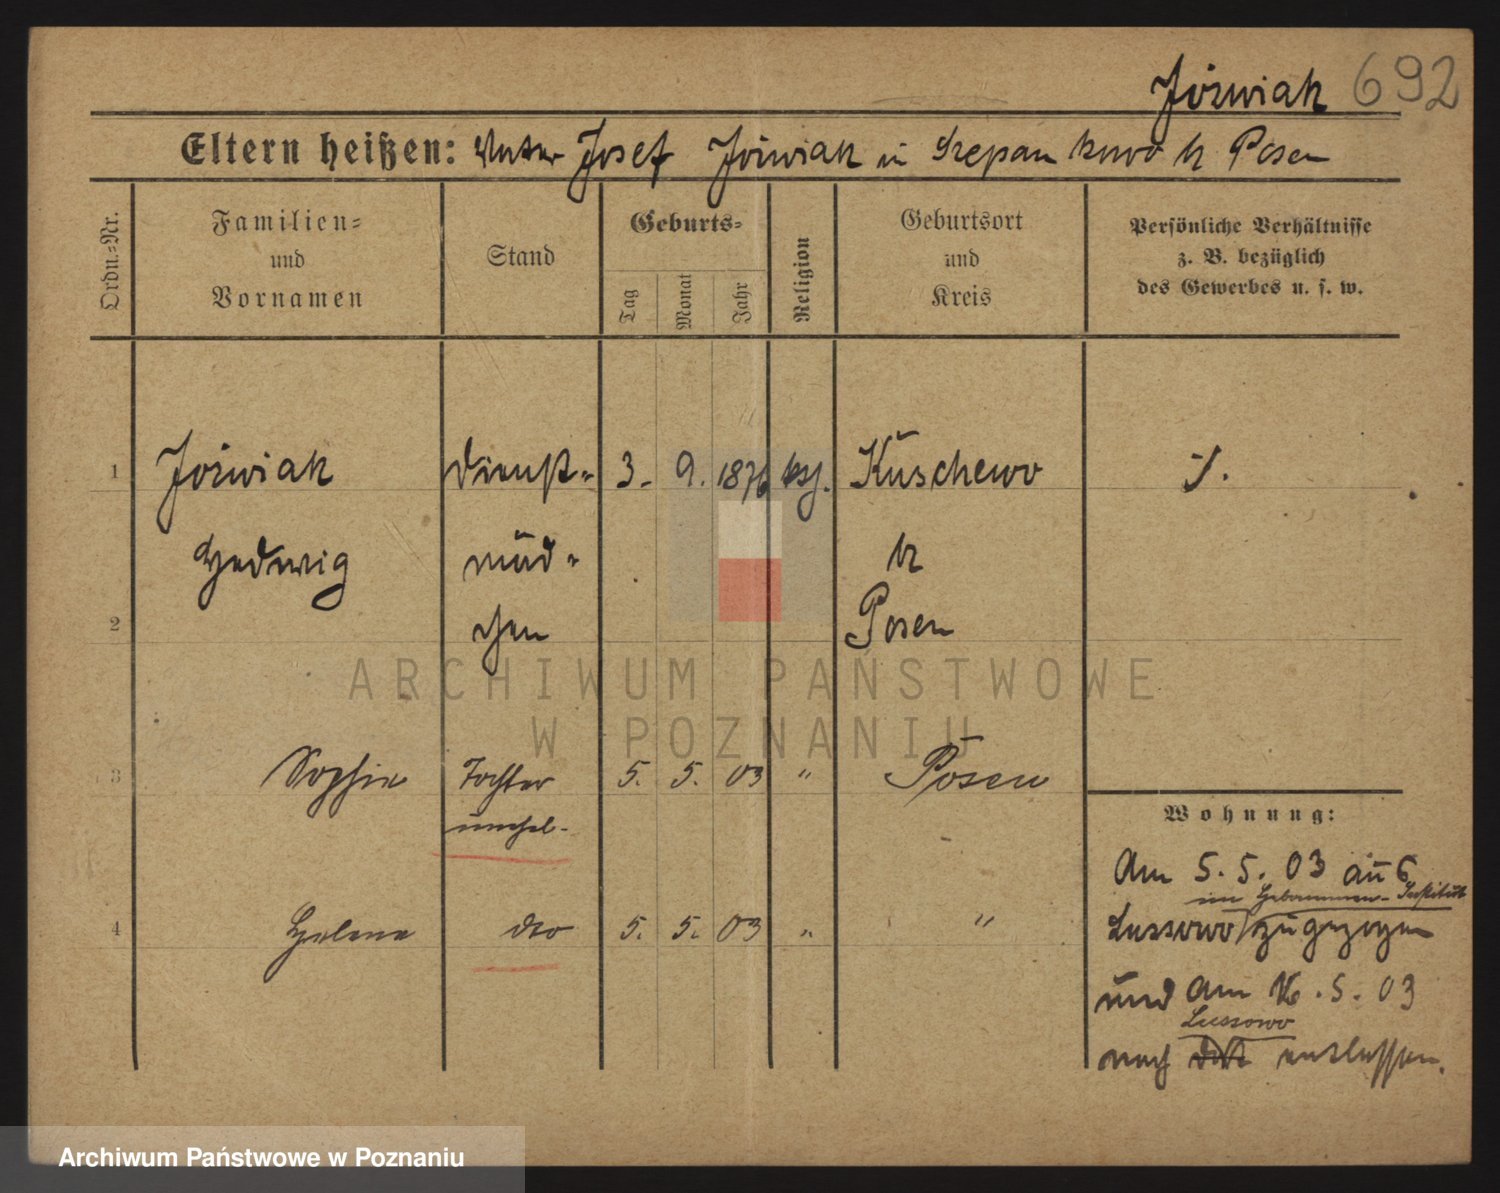 Jóźwiak 692
Eltern heißen: Vater Josef Jóźwiak in Szepankowo Kr Posen
Ordn.-Nr.
Familien- und Vornamen
Stand
Geburts-
Tag
Monat
Jahr
Religion
Geburtsort und Kreis
Persönliche Verhältnisse z. B. bezüglich des Gewerbes u. s. w.
1 Jóźwiak Dienst- 3. 9. 1876 ksch. Kuschewo ./.
Hedwig mäd- Kr
2 chen Posen
ARCHIWUM PAŃSTWOWE
W POZNANIU
3 Sophie Tochter 5. 5. 03 " Posen
unehel.
Wohnung:
Am 5. 5. 03 aus
im Hebammen-Institut
4 Helene dto 5. 5. 03 " "
Lussowo zugezogen
und am 16. 5. 03
Lussowo
nach entlassen.
Archiwum Państwowe w Poznaniu